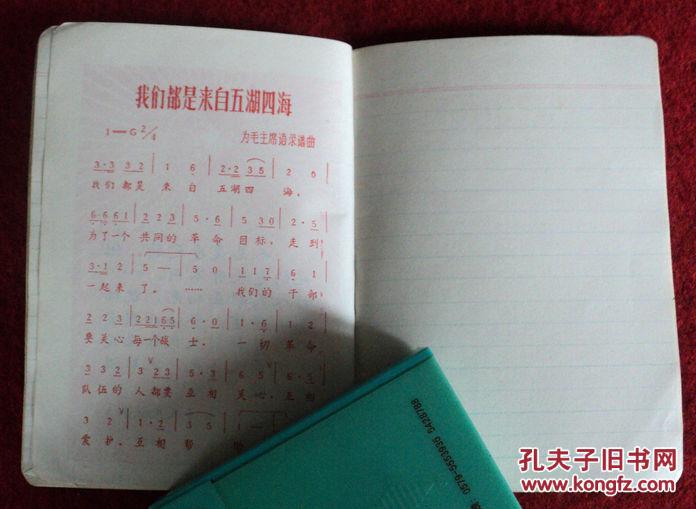 我们都是来自五湖四海
1—G 2/4
为毛主席语录谱曲
3·3 3 2 | 1 6 | 2·2 3 5 | 2 0 |
我们 都是 来 自 五湖四 海,
6·6 6 1 | 2 2 3 | 5·6 | 5 3 0 | 2·5 |
为了一个 共同的 革 命 目标, 走到
3·1 2 | 5 — | 5 0 | 1 1 7 | 6 1 |
一起来 了。 …… 我们的 干部
2 2 3 | 2 2 1 6 5 | 6·0 | 1·6 | 1 2 |
要关心 每一个战 士, 一切 革命
3 3 2 | 3 2 3 | 5·3 | 6 5 | 6·5 |
队伍的 人都要 互相 关心,互相
3 2 | 1·2 | 3 5 | 1 — |
爱护,互相 帮
0579-5553936 5428788
孔夫子旧书网
www.kongfz.com